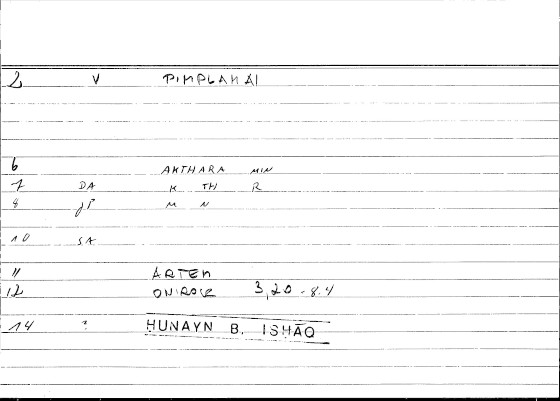 2 V PIMPLAHAI
6 AKTHARA MIN
7 DA K TH R
8 JP M N
10 SA
11 ARTEM
12 ONIROCR 3,20-8.4
14 ? ḤUNAYN B. ISḤĀQ